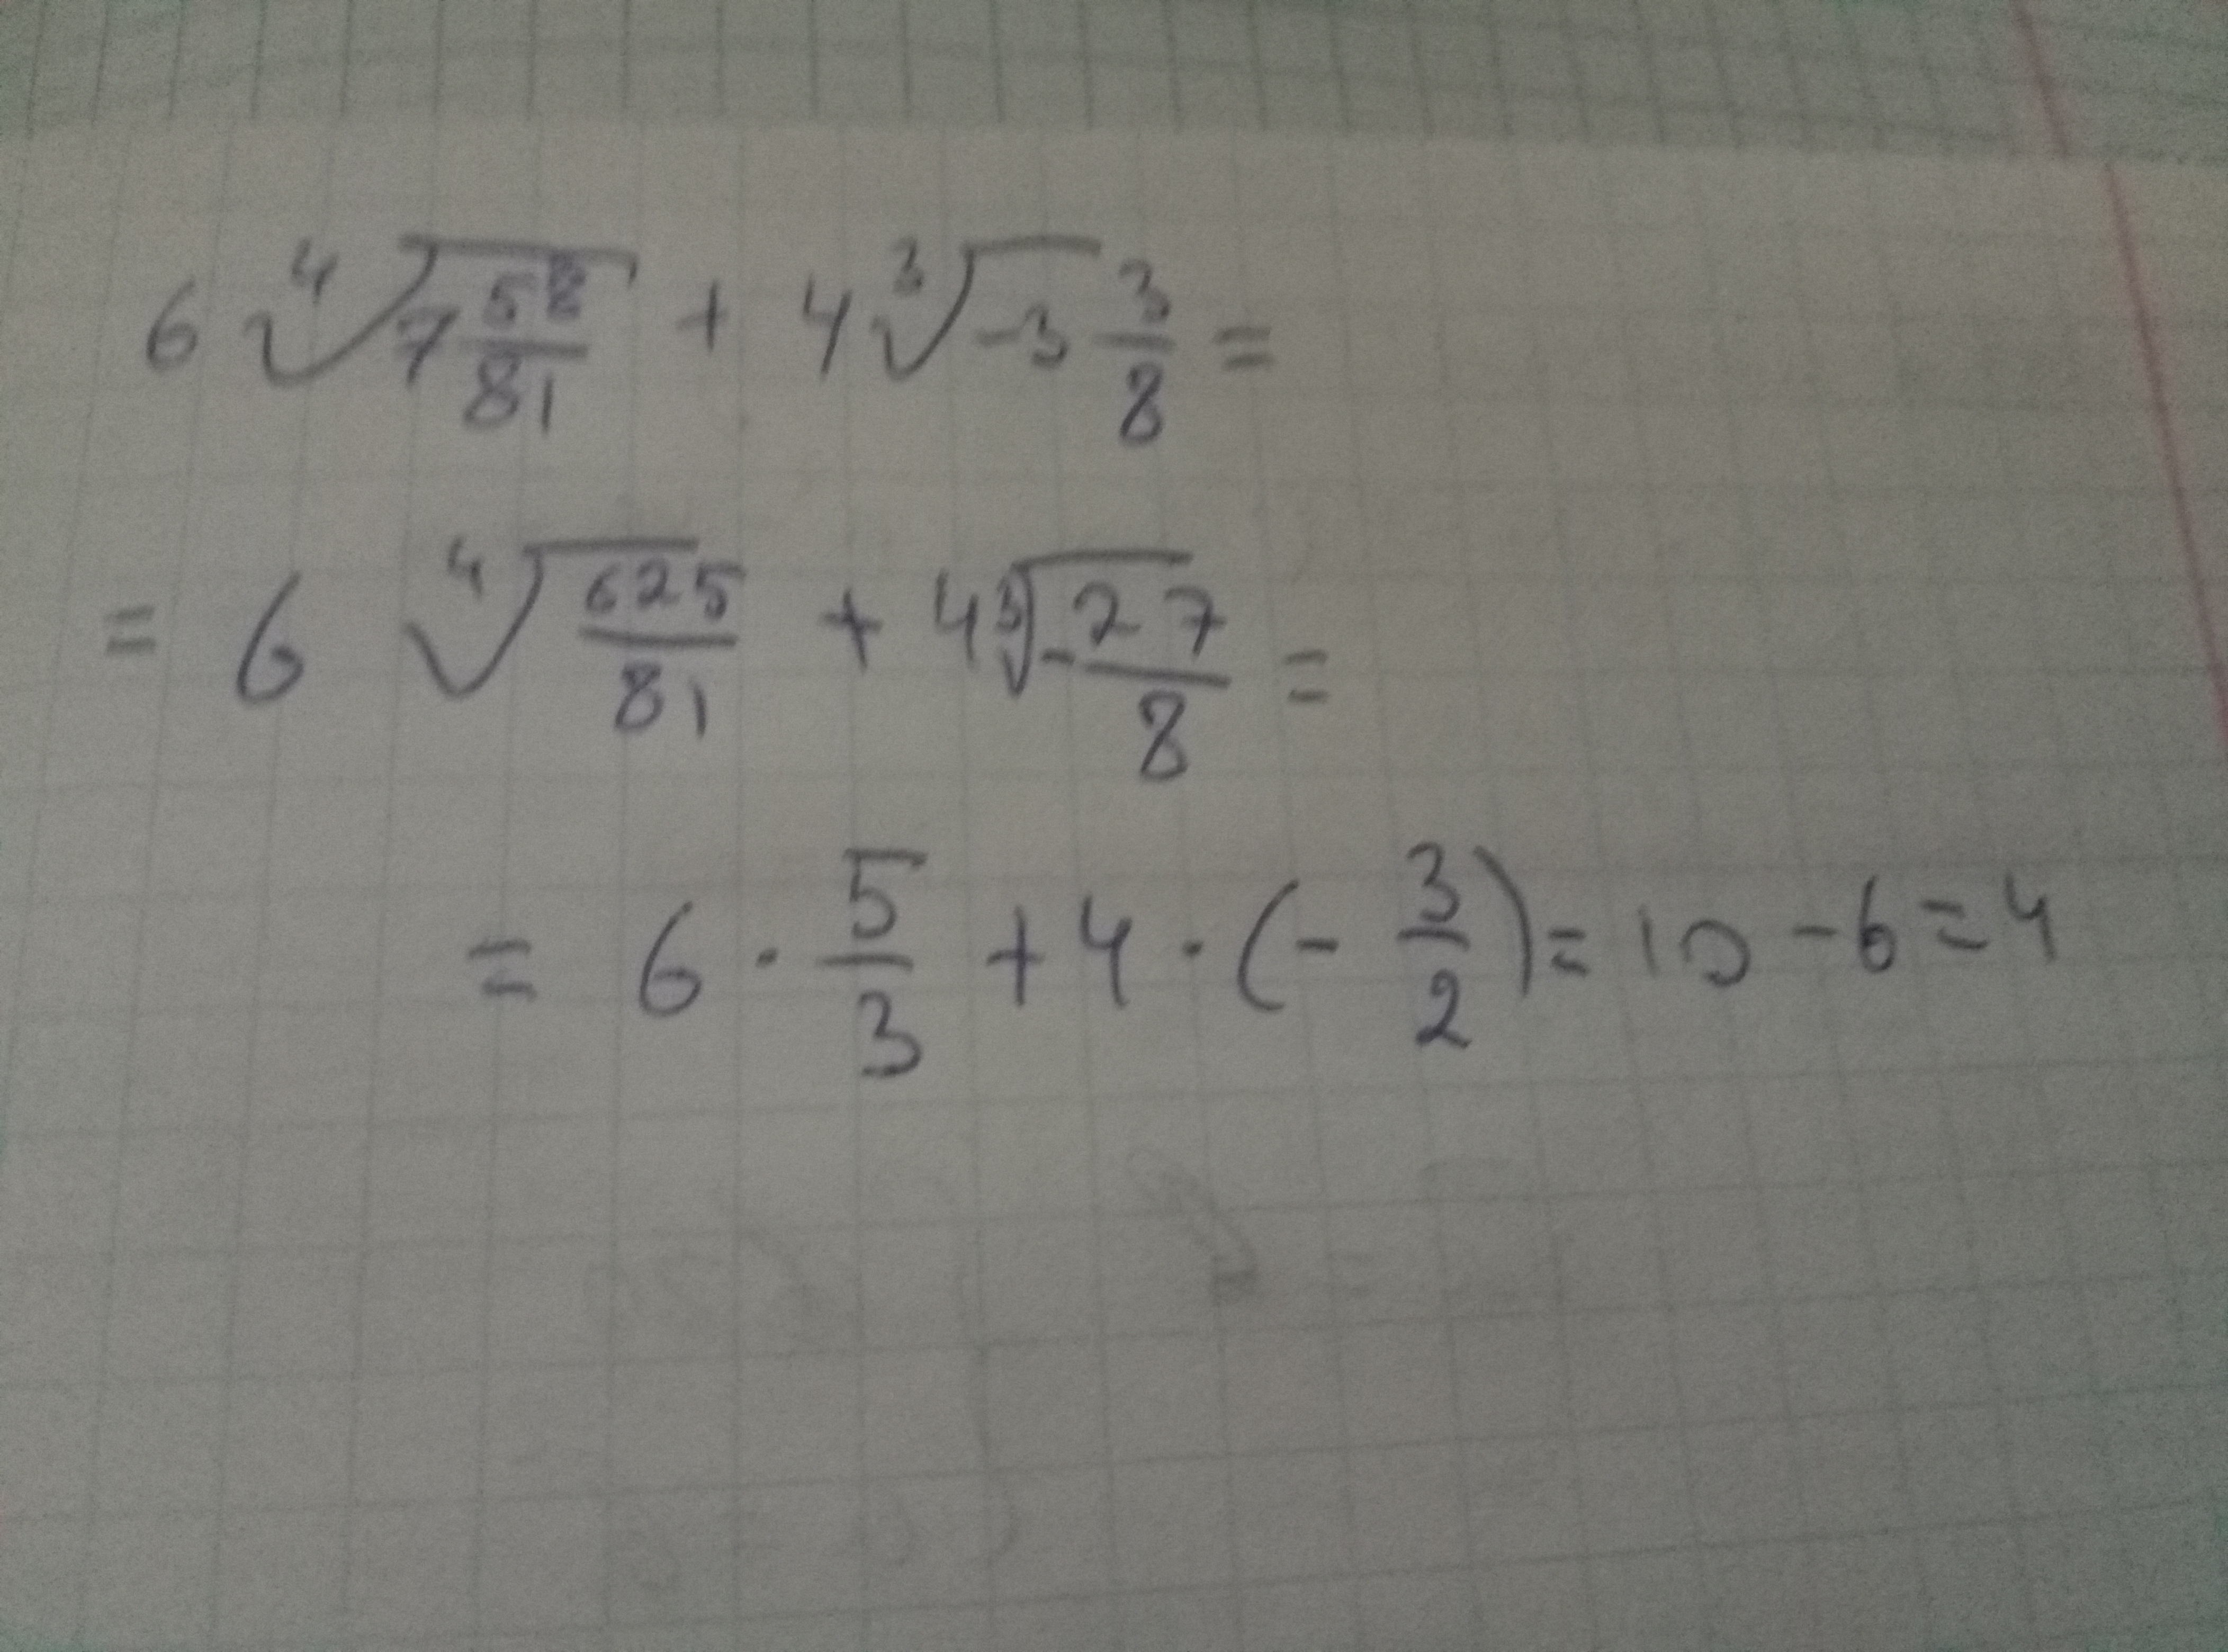 6 ⁴√(7 58/81) + 4 ³√(-3 3/8) =
= 6 ⁴√(625/81) + 4 ³√(-27/8) =
= 6 · 5/3 + 4 · (- 3/2) = 10 - 6 = 4